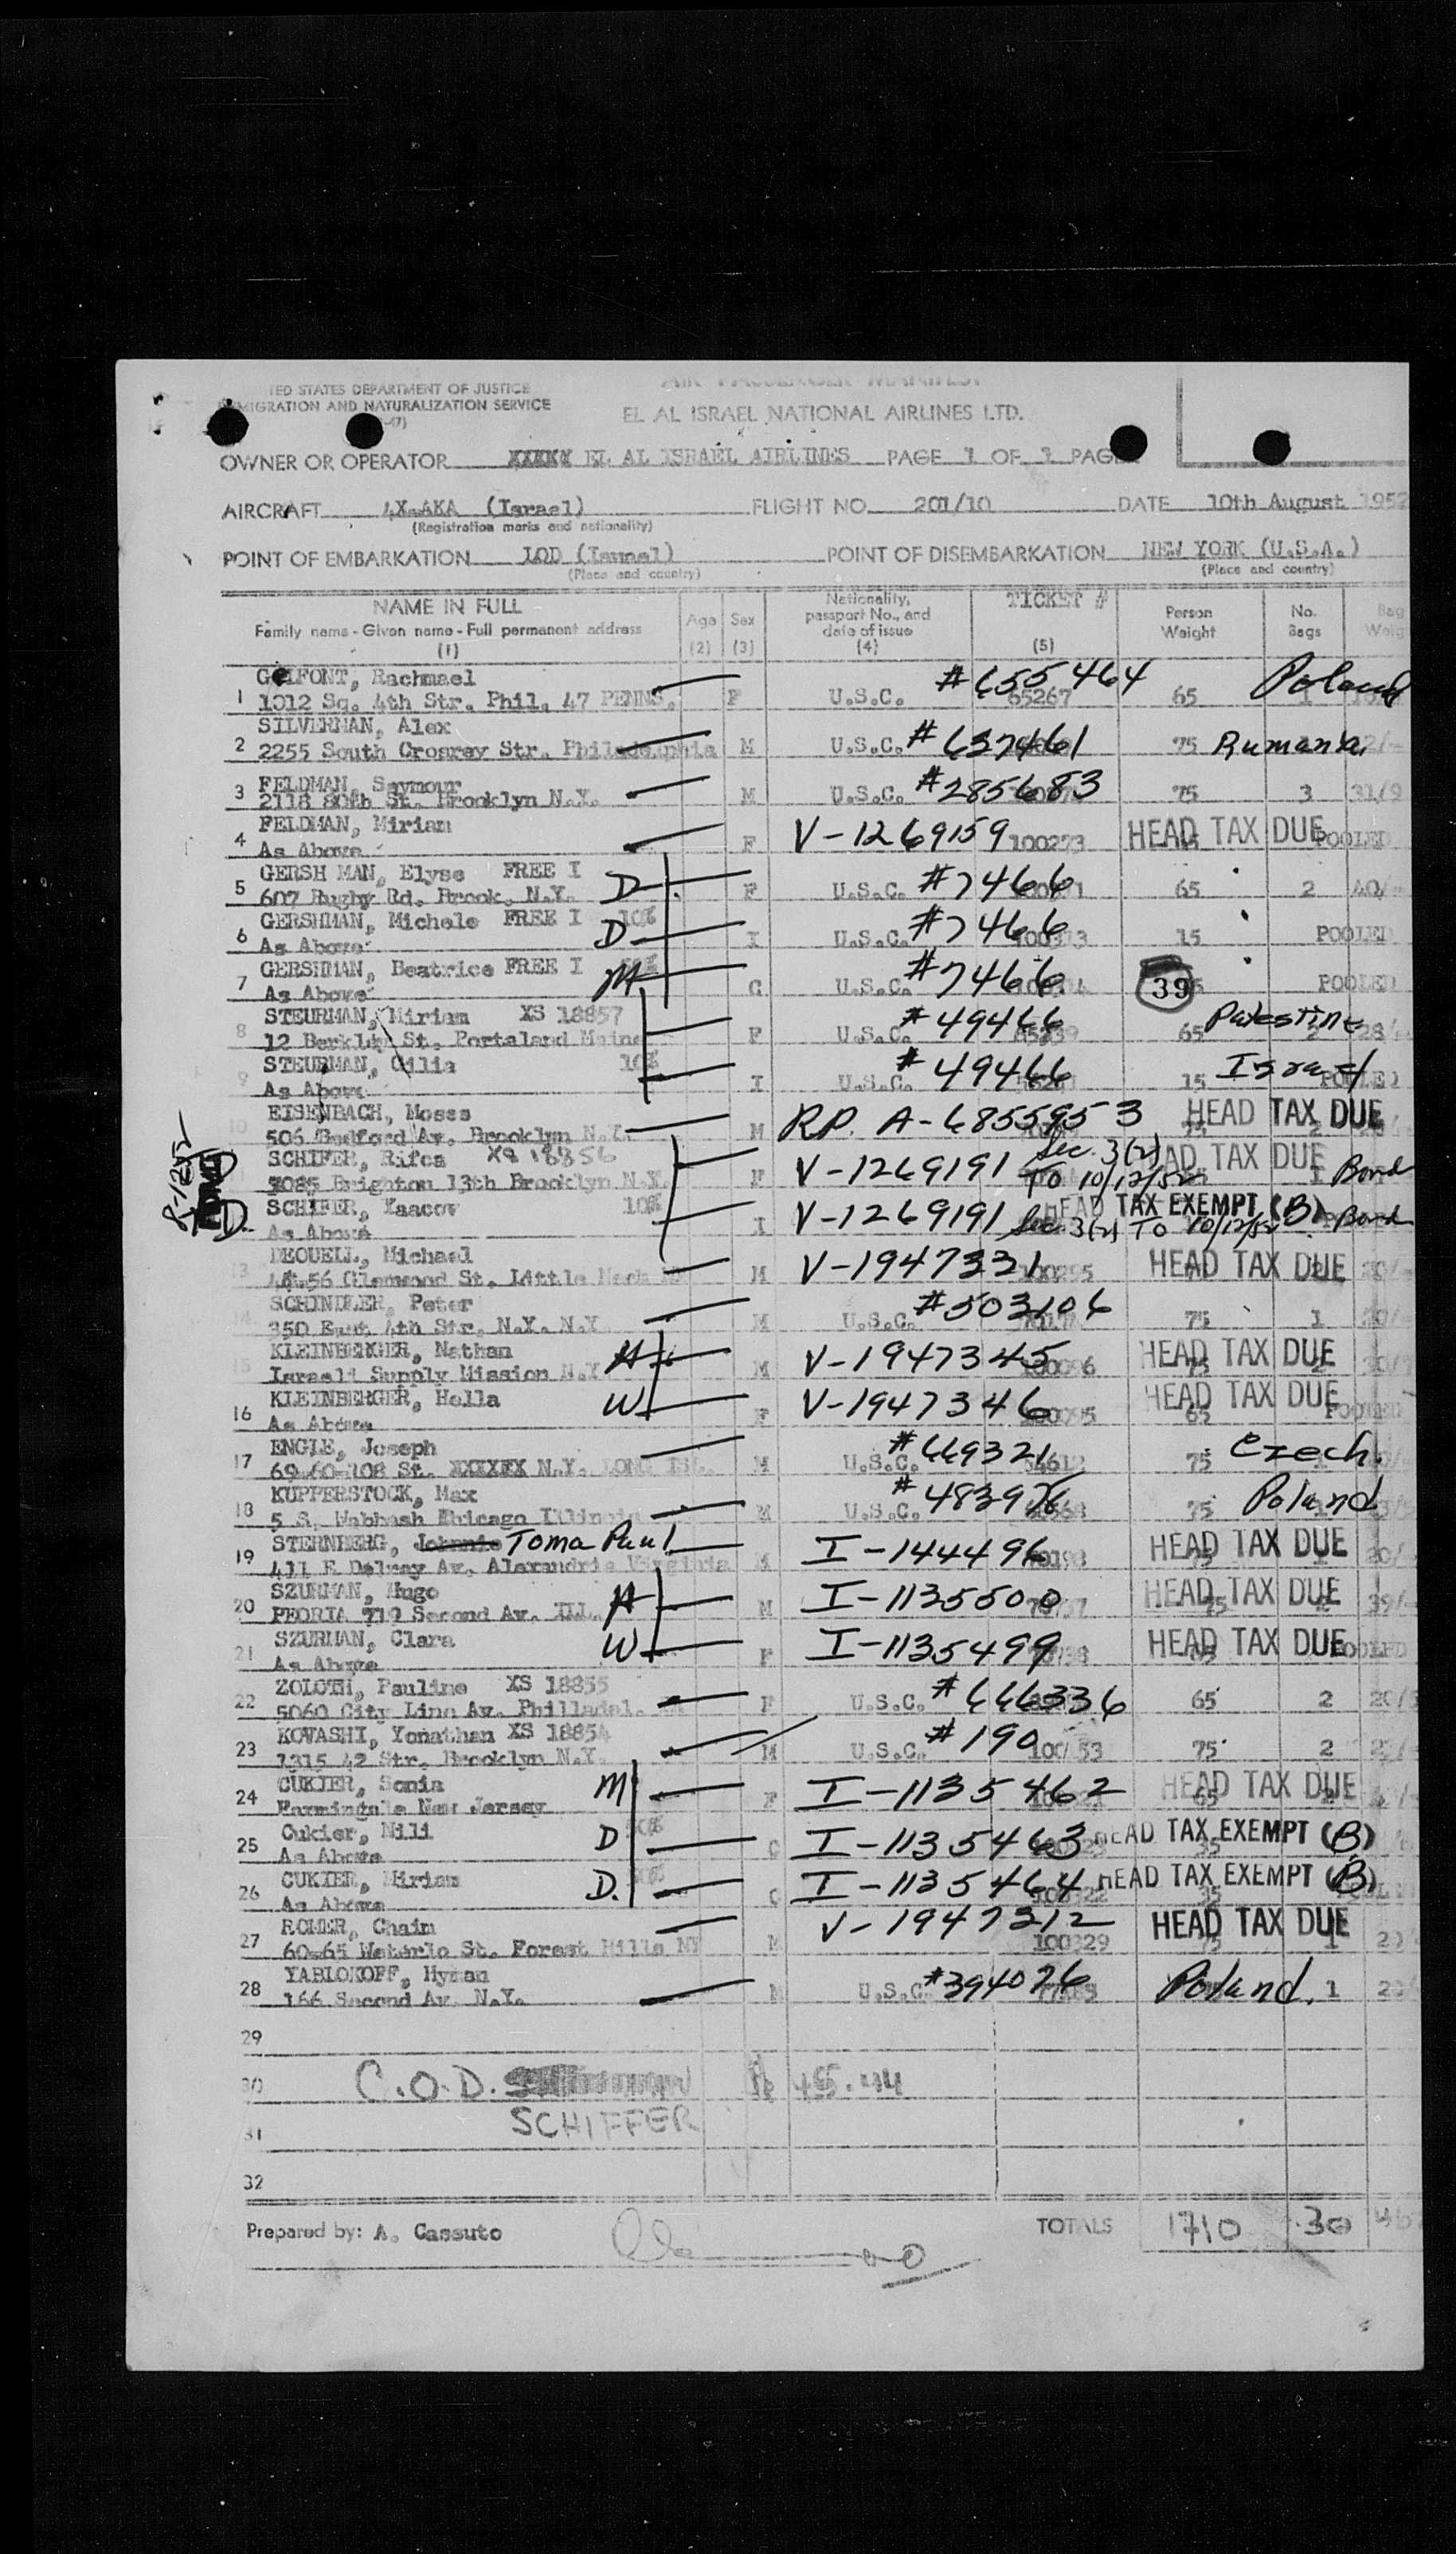 TED STATES DEPARTMENT OF JUSTICE
MIGRATION AND NATURALIZATION SERVICE
-47)
AIR PASSENGER MANIFEST
EL AL ISRAEL NATIONAL AIRLINES LTD.
OWNER OR OPERATOR XXXXX EL AL ISRAEL AIRLINES PAGE 1 OF 1 PAGE
AIRCRAFT 4X.AKA (Israel) FLIGHT NO. 201/10 DATE 10th August 1952
(Registration marks and nationality)
POINT OF EMBARKATION LOD (Israel) POINT OF DISEMBARKATION NEW YORK (U.S.A.)
(Place and country) (Place and country)
NAME IN FULL Age Sex Nationality, passport No., and date of issue TICKET # Person Weight No. Bags Bag Weig
Family name - Given name - Full permanent address
(1) (2) (3) (4) (5)
GELFONT, Rachmael #655464 Poland
1 1012 So. 4th Str. Phil. 47 PENNS. F U.S.C. 65267 65 1
SILVERMAN, Alex
2 2255 South Crosrey Str. Philadelphia M U.S.C. #637461 75 Rumania
3 FELDMAN, Seymour #285683
2118 80th St. Brooklyn N.Y. M U.S.C. 75 3 31/9
FELDMAN, Miriam V-1269159 HEAD TAX DUE
4 As Above F 100273 POOLED
GERSH MAN, Elyse FREE I
5 607 Rugby Rd. Brook. N.Y. D F U.S.C. #7466 65 2 40/
GERSHMAN, Michele FREE I 10%
6 As Above D I U.S.C. #7466 100313 15 POOLED
GERSHMAN, Beatrice FREE I
7 As Above M C U.S.C. #7466 39 POOLED
STEURMAN, Miriam XS 18857 #49466 Palestine
8 12 Berkley St. Portaland Maine F U.S.C. 65 2 28/
STEURMAN, Gilia 10% #49466 Israel
9 As Above I U.S.C. 15 POOLED
EISENBACH, Moses RP. A-6855953 HEAD TAX DUE
10 506 Bedford Av. Brooklyn N.Y. M
SCHIFER, Rifca XS 18856 V-1269191 Sec. 3(2) HEAD TAX DUE
3085 Brighton 13th Brooklyn N.Y. F To 10/12/52 1 Bond
SCHIFER, Yaacov 10% V-1269191 HEAD TAX EXEMPT (B)
D. As Above I Sec. 3(2) TO 10/12/52 Bond
DEQUELL, Michael V-1947331 HEAD TAX DUE
13 Glenwood St. Little Neck M
SCHINDLER, Peter #503106
350 East 4th Str. N.Y. N.Y. M U.S.C. 75 1 20/
KLEINBERGER, Nathan H V-1947345 HEAD TAX DUE
15 Israeli Supply Mission N.Y. M
KLEINBERGER, Hella W V-1947346 HEAD TAX DUE
16 As Above F 65 POOLED
ENGLE, Joseph #669321 Czech.
17 69-60-108 St. XXXXXX N.Y. LONG ISL. M U.S.C. 54612 75
KUPPERSTOCK, Max #483976 Poland
18 5 S. Wabbash Chicago Illinois M U.S.C. 75
STERNBERG, Johnnie Toma Paul I-144496 HEAD TAX DUE
19 411 E Delray Av. Alexandria Virginia M 20/
SZURMAN, Hugo H I-1135500 HEAD TAX DUE
20 PEORIA 719 Second Av. ILL. M 39/
SZURMAN, Clara W I-1135499 HEAD TAX DUE
21 As Above F POOLED
ZOLOTH, Pauline XS 18855 #666336
22 5060 City Line Av. Philladel. F U.S.C. 65 2 20/
KOVASHI, Yonathan XS 18854 #190
23 1315 42 Str. Brooklyn N.Y. M U.S.C. 75 2
CUKIER, Sonia M I-1135462 HEAD TAX DUE
24 Farmingdale New Jersey F 65
Cukier, Nili 50%
25 As Above D C I-1135463 HEAD TAX EXEMPT (B)
CUKIER, Miriam
26 As Above D. C I-1135464 HEAD TAX EXEMPT (B)
ROMER, Chaim V-1947312 HEAD TAX DUE
27 60-65 Waterlo St. Forest Hills NY M 100329 75 1
YABLOKOFF, Hyman #394076 Poland.
28 166 Second Av. N.Y. M U.S.C. 1
29
30 C.O.D. $ 45.44
31 SCHIFFER
32
Prepared by: A. Cassuto TOTALS 1710 30